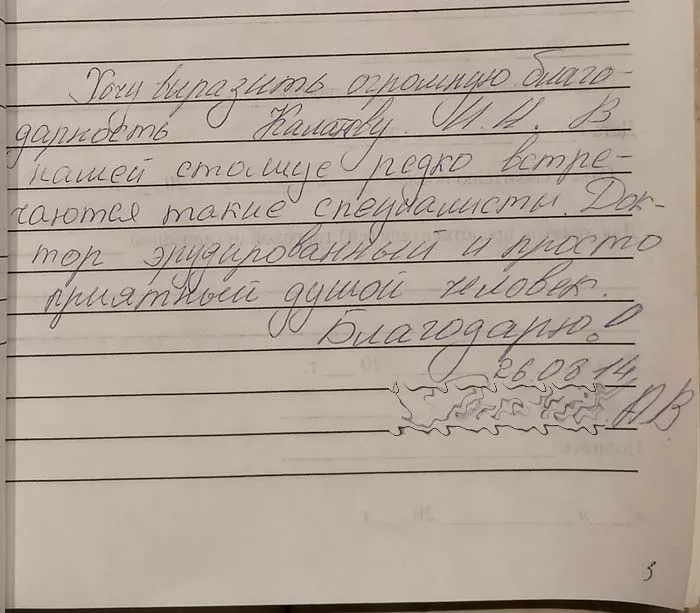 Хочу выразить огромную благо-
дарность И.Н. В
нашей столице редко встре-
чаются такие специалисты. Док-
тор эрудированный и просто
приятный душой человек.
Благодарю!
26.08.14
АВ